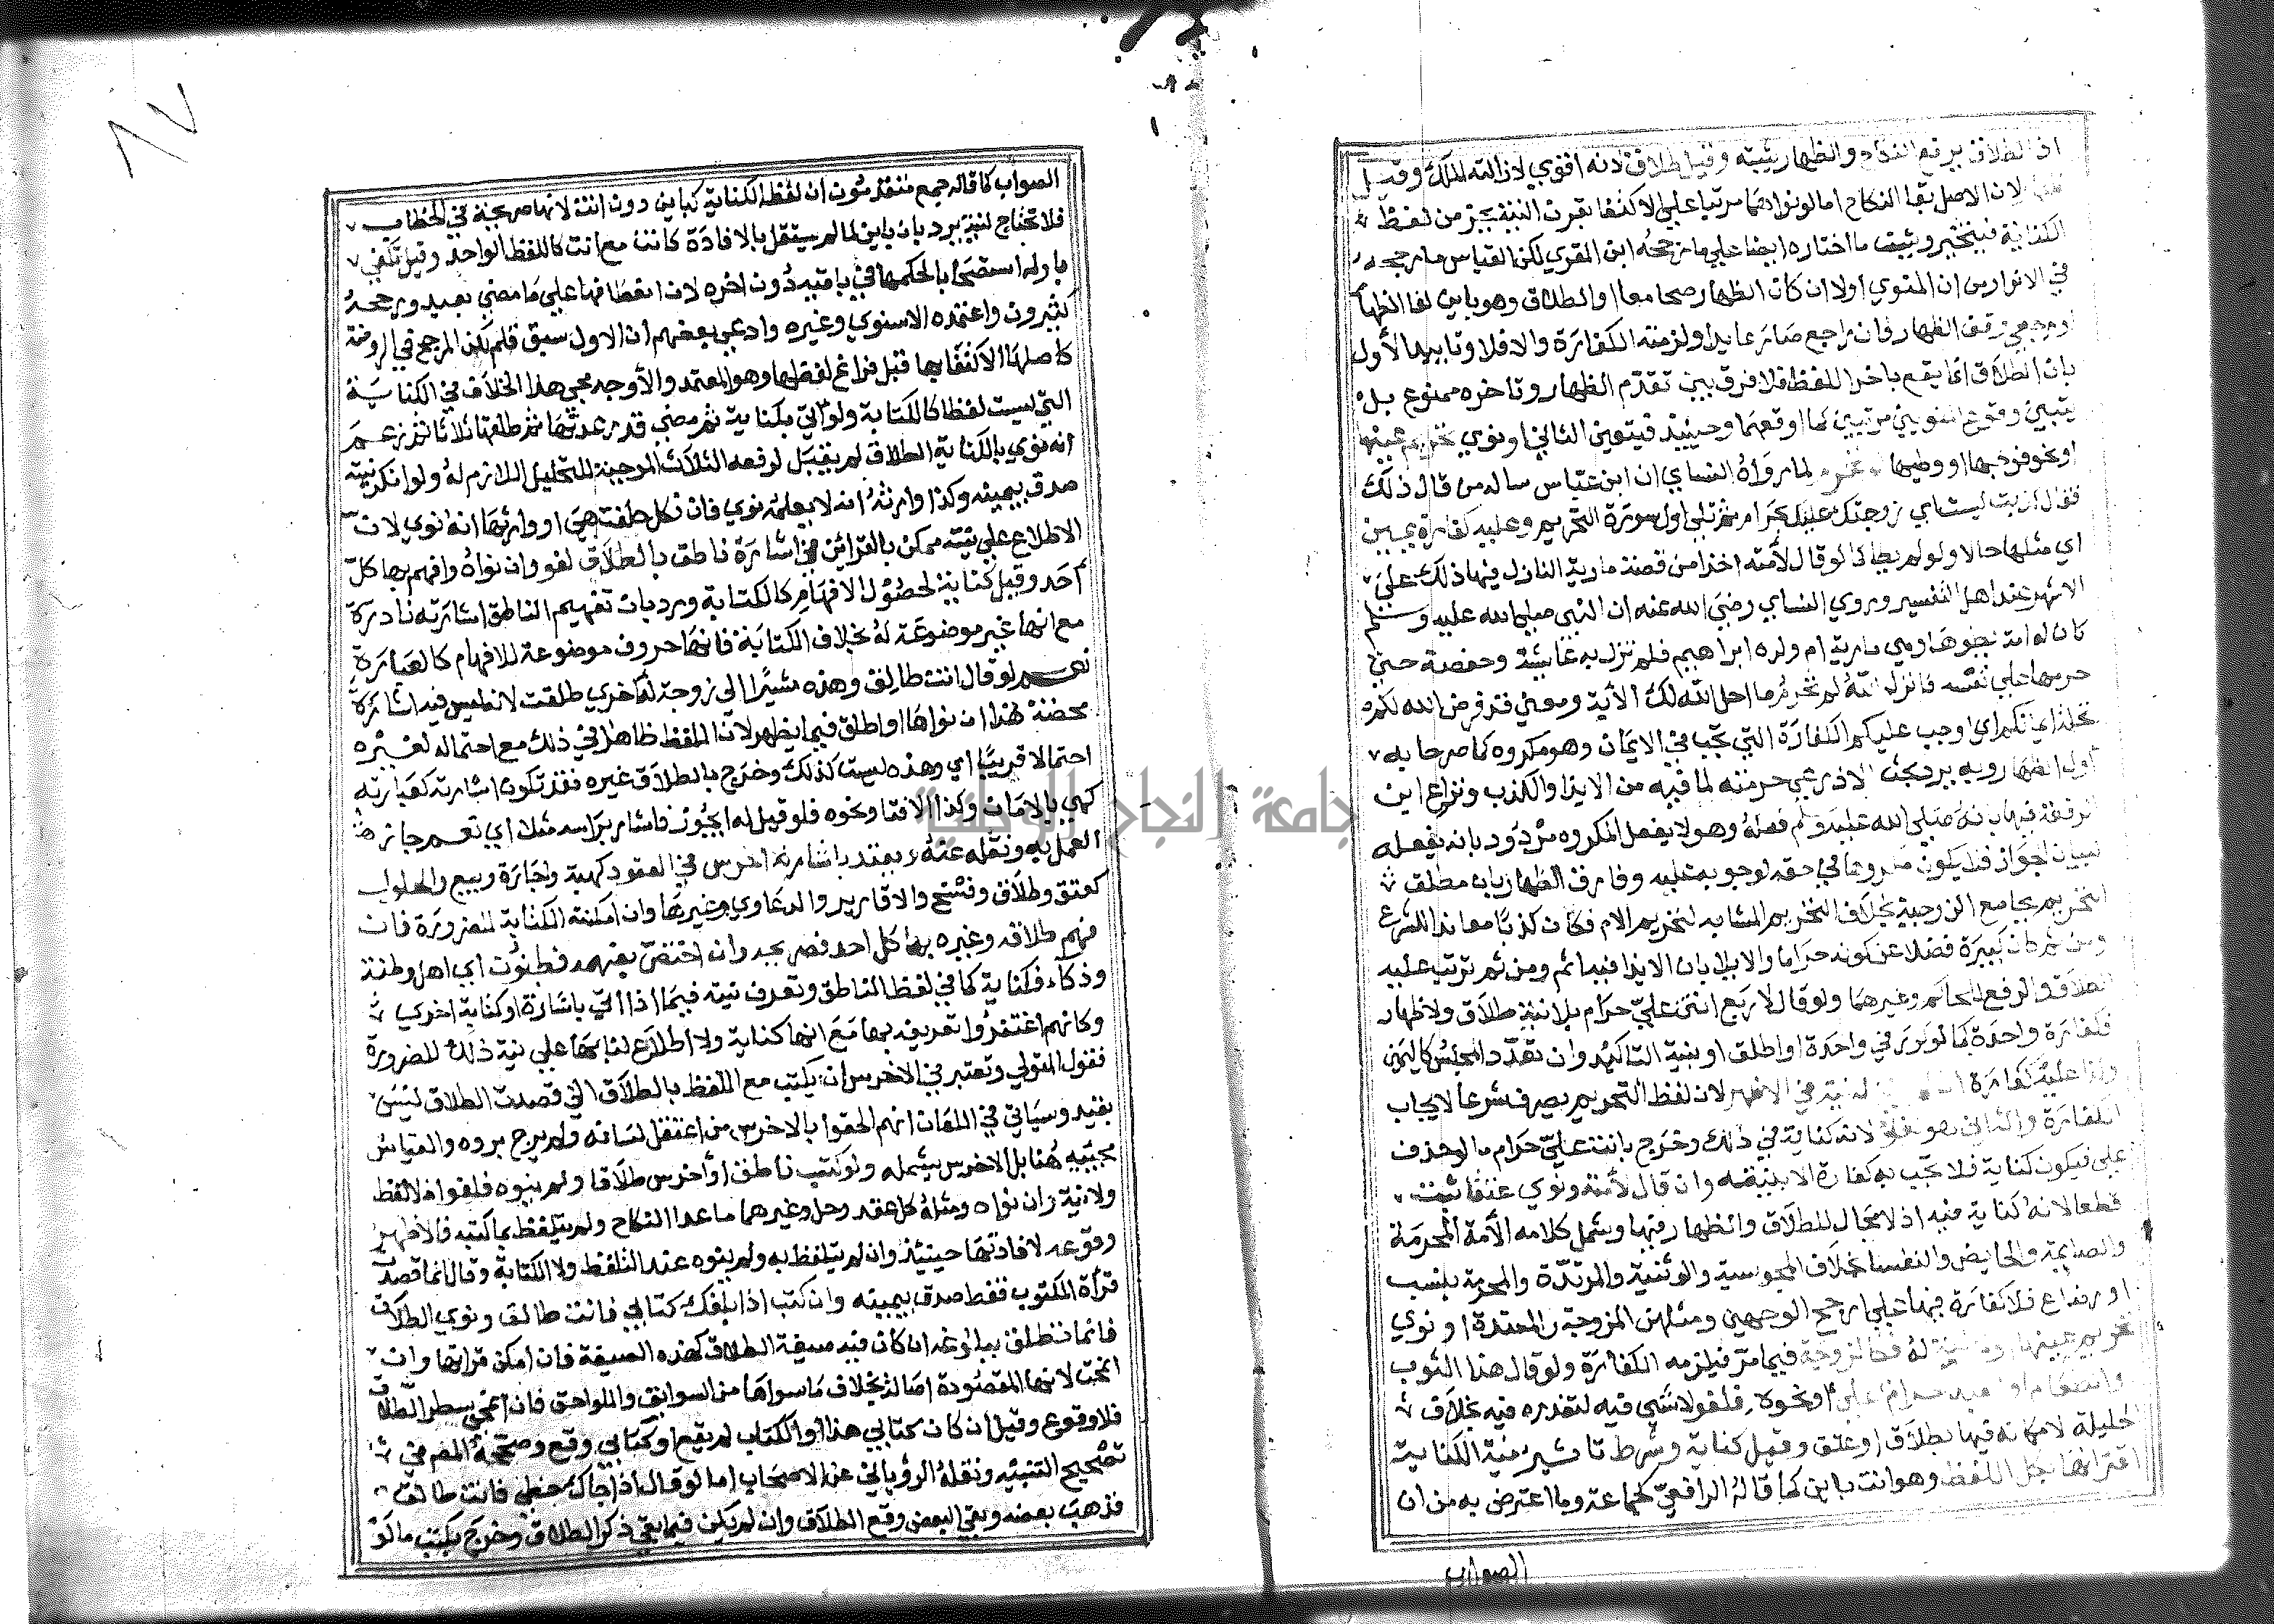 اذ الطلاق يرفع النكاح والظهار يثبته وقيل طلاق لانه اقوي لازالته الملك وقيل
لان الاصل بقا النكاح اما لو نواهما مرتبا علي الاكتفا بقرن النية بجزء من لفظ
الكناية فيتخير ويثبت ما اختاره ايضا علي ما رجحه ابن المقري لكن القياس ما رجحه
في الانوار من ان المنوي اولا ان كان الظهار صحا معا او الطلاق وهو باين لغا الظهار
او رجعي وقف الظهار فان راجع صار عايدا ولزمته الكفارة والا فلا وتاييد الأول
بان الطلاق انما يقع باخر اللفظ فلا فرق بين تقدم الظهار وتاخره ممنوع بل
يتبين وقوع المنويين مرتبين كما اوقعهما وحينيذ فيتعين الثاني او نوي تحريم عينها
او نحو فرجها او وطيها لم تحرم لما رواه النساي ان ابن عباس ساله من قال ذلك
فقال كذبت ليست اي زوجتك عليك بحرام ثم تلي اول سورة التحريم وعليه كفارة يمين
اي مثلها حالا ولو لم يطا كما لو قال لأمته اخذا من قصة مارية النازل فيها ذلك علي
الاشهر عند اهل التفسير وروي النساي رضي الله عنه ان النبي صلي الله عليه وسلم
كان له امة يطؤها اي وهي مارية ام ولده ابراهيم فلم تزل به عايشة وحفصة حتي
حرمها علي نفسه فانزل الله لم تحرم ما احل الله لك الأية ومعني قد فرض الله لكم
تحلة ايمانكم اي اوجب عليكم الكفارة التي تجب في الايمان وهو مكروه كما صرحا به
اول الظهار وبه يرد بحث الاذرعي حرمته لما فيه من الايذا والكذب ونزاع ابن
الرفعة فيها بانه صلي الله عليه وسلم فعله وهو لا يفعل المكروه مردود بانه يفعله
لبيان الجواز فلا يكون مكروها في حقه لوجوبه عليه وفارق الظهار بان مطلق
التحريم يجامع الزوجية بخلاف التحريم المشابه لتحريم الام فكان كذبا معاندا للشرع
ومن ثم كان كبيرة فضلا عن كونه حراما والايلا بان الايذا فيه اتم ومن ثم ترتب عليه
الطلاق والرفع للحاكم وغيرهما ولو قال لاربع انتن علي حرام بلا نية طلاق ولا ظهار
فكفارة واحدة كما لو كرر في واحدة او اطلق او بنية التاكيد وان تعدد المجلس كاليمين
وكذا عليه كفارة ان لم تكن له نية في الاظهر لان لفظ التحريم ينصرف شرعا لايجاب
الكفارة والثاني هو لغو لانه كناية في ذلك وخرج بانت علي حرام ما لو حذف
علي فيكون كناية فلا تجب به كفارة الا بنيته وان قال لأمته ونوي عتقا ثبت
قطعا لانه كناية فيه اذ لا مجال للطلاق والظهار فيها ويشمل كلامه الأمة المحرمة
والصايمة والحايض والنفسا بخلاف المجوسية والوثنية والمرتدة والمحرمة بنسب
او رضاع فلا كفارة فيها علي ارجح الوجهين ومثلهن المزوجة والمعتدة او نوي
تحريم عينها او لا نية له فكالزوجة فيما مر فيلزمه الكفارة ولو قال هذا الثوب
والطعام او العبد حرام علي او نحوه فلغو لا شي فيه لتعذره فيه بخلاف
الحليلة لامكانه فيها بطلاق او عتق وقيل كناية وشرط تاثير نية الكناية
اقترانها بكل اللفظ وهو انت باين كما قاله الرافعي كجماعة وما اعترض به من ان
الصواب
٨٧
الصواب كما قاله جمع متقدمون ان لفظ الكناية كباين دون انت لانها صريحة في الخطاب
فلا تحتاج لنية يرد بان باين لما لم يستقل بالافادة كانت مع انت كاللفظ الواحد وقيل تكفي
باوله استصحابا لحكمها في باقيه دون اخره لان انعطافها علي ما مضي بعيد ورجحه
كثيرون واعتمده الاسنوي وغيره وادعي بعضهم ان الاول سبق قلم لكن المرجح في الروضة
كاصلها الاكتفا بها قبل فراغ لفظها وهو المعتمد والأوجه مجي هذا الخلاف في الكناية
التي ليست لفظا كالكتابة ولو اتي بكناية ثم مضي قدر عدتها ثم طلقها ثلاثا ثم زعم
انه نوي بالكناية الطلاق لم يقبل لرفعه الثلاث الموجبة للتحليل اللازم له ولو انكر نيته
صدق بيمينه وكذا وارثه انه لا يعلمه نوي فان نكل حلفت هي او وارثها انه نوي لان
الاطلاع علي نيته ممكن بالقراين في اشارة ناطق بالطلاق لغو وان نواه وافهم بها كل
احد وقيل كناية لحصول الافهام كالكتابة ويرد بان تفهيم الناطق اشارته نادرة
مع انها غير موضوعة له بخلاف الكتابة فانها حروف موضوعة للافهام كالعبارة
نعم لو قال انت طالق وهذه مشيرا الي زوجة له اخري طلقت لانه ليس فيه اشارة
محضة هذا ان نواها او اطلق فيما يظهر لان اللفظ ظاهر في ذلك مع احتماله لغيره
احتمالا قريبا اي وهذه ليست كذلك وخرج بالطلاق غيره فقد تكون اشارته كعبارته
كهي بالامان وكذا الافتا ونحوه فلو قيل له ايجوز فاشار براسه مثلا اي نعم جاز
العمل به ونقله عنه ويعتد باشارة اخرس في العقود كهبة واجارة وبيع والحلول
كعتق وطلاق وفسخ والاقارير والدعاوي وغيرها وان امكنته الكتابة للضرورة فان
فهم طلاقه وغيره بها كل احد فصريحة وان اختص بفهمه فطنون اي اهل فطنة
وذكاء فكناية كما في لفظ الناطق وتعرف نيته فيما اذا اتي باشارة او كناية اخري
وكانهم اغتفروا تعريفه بها مع انها كناية ولا اطلاع لنا بها علي نية ذلك للضرورة
فقول المتولي وتعتبر في الاخرس ان يكتب مع اللفظ بالطلاق اني قصدت الطلاق ليس
بقيد وسياتي في اللعان انهم الحقوا بالاخرس من اعتقل لسانه ولم يرج بروه والقياس
مجييه هنا بل الاخرس يشمله ولو كتب ناطق او اخرس طلاقا ولم ينوه فلغو اذ لا لفظ
ولا نية وان نواه ومثله كل عقد وحل وغيرهما ما عدا النكاح ولم يتلفظ بما كتبه فالاظهر
وقوعه لافادتها حينيذ وان لم يتلفظ به ولم ينوه عند التلفظ ولا الكتابة وقال انما قصدت
قرأة المكتوب فقط صدق بيمينه وان كتب اذا بلغك كتابي فانت طالق ونوي الطلاق
فانما تطلق ببلوغه ان كان فيه صيغة الطلاق كهذه الصيغة فان امكن قراتها وان
انمحت لانها المقصودة اصالة بخلاف ما سواها من السوابق واللواحق فان انمحي سطر الطلاق
فلا وقوع وقيل ان كان كتابي هذا او الكتاب لم يقع او كتابي وقع وصححه المصـ في
تصحيح التنبيه ونقله الروياني عن الاصحاب اما لو قال اذا جاك خطي فانت طالق
فذهب بعضه وبقي البعض وقع الطلاق وان لم يكن فيما بقي ذكر الطلاق وخرج بكتب ما لو
جامعة النجاح الوطنية